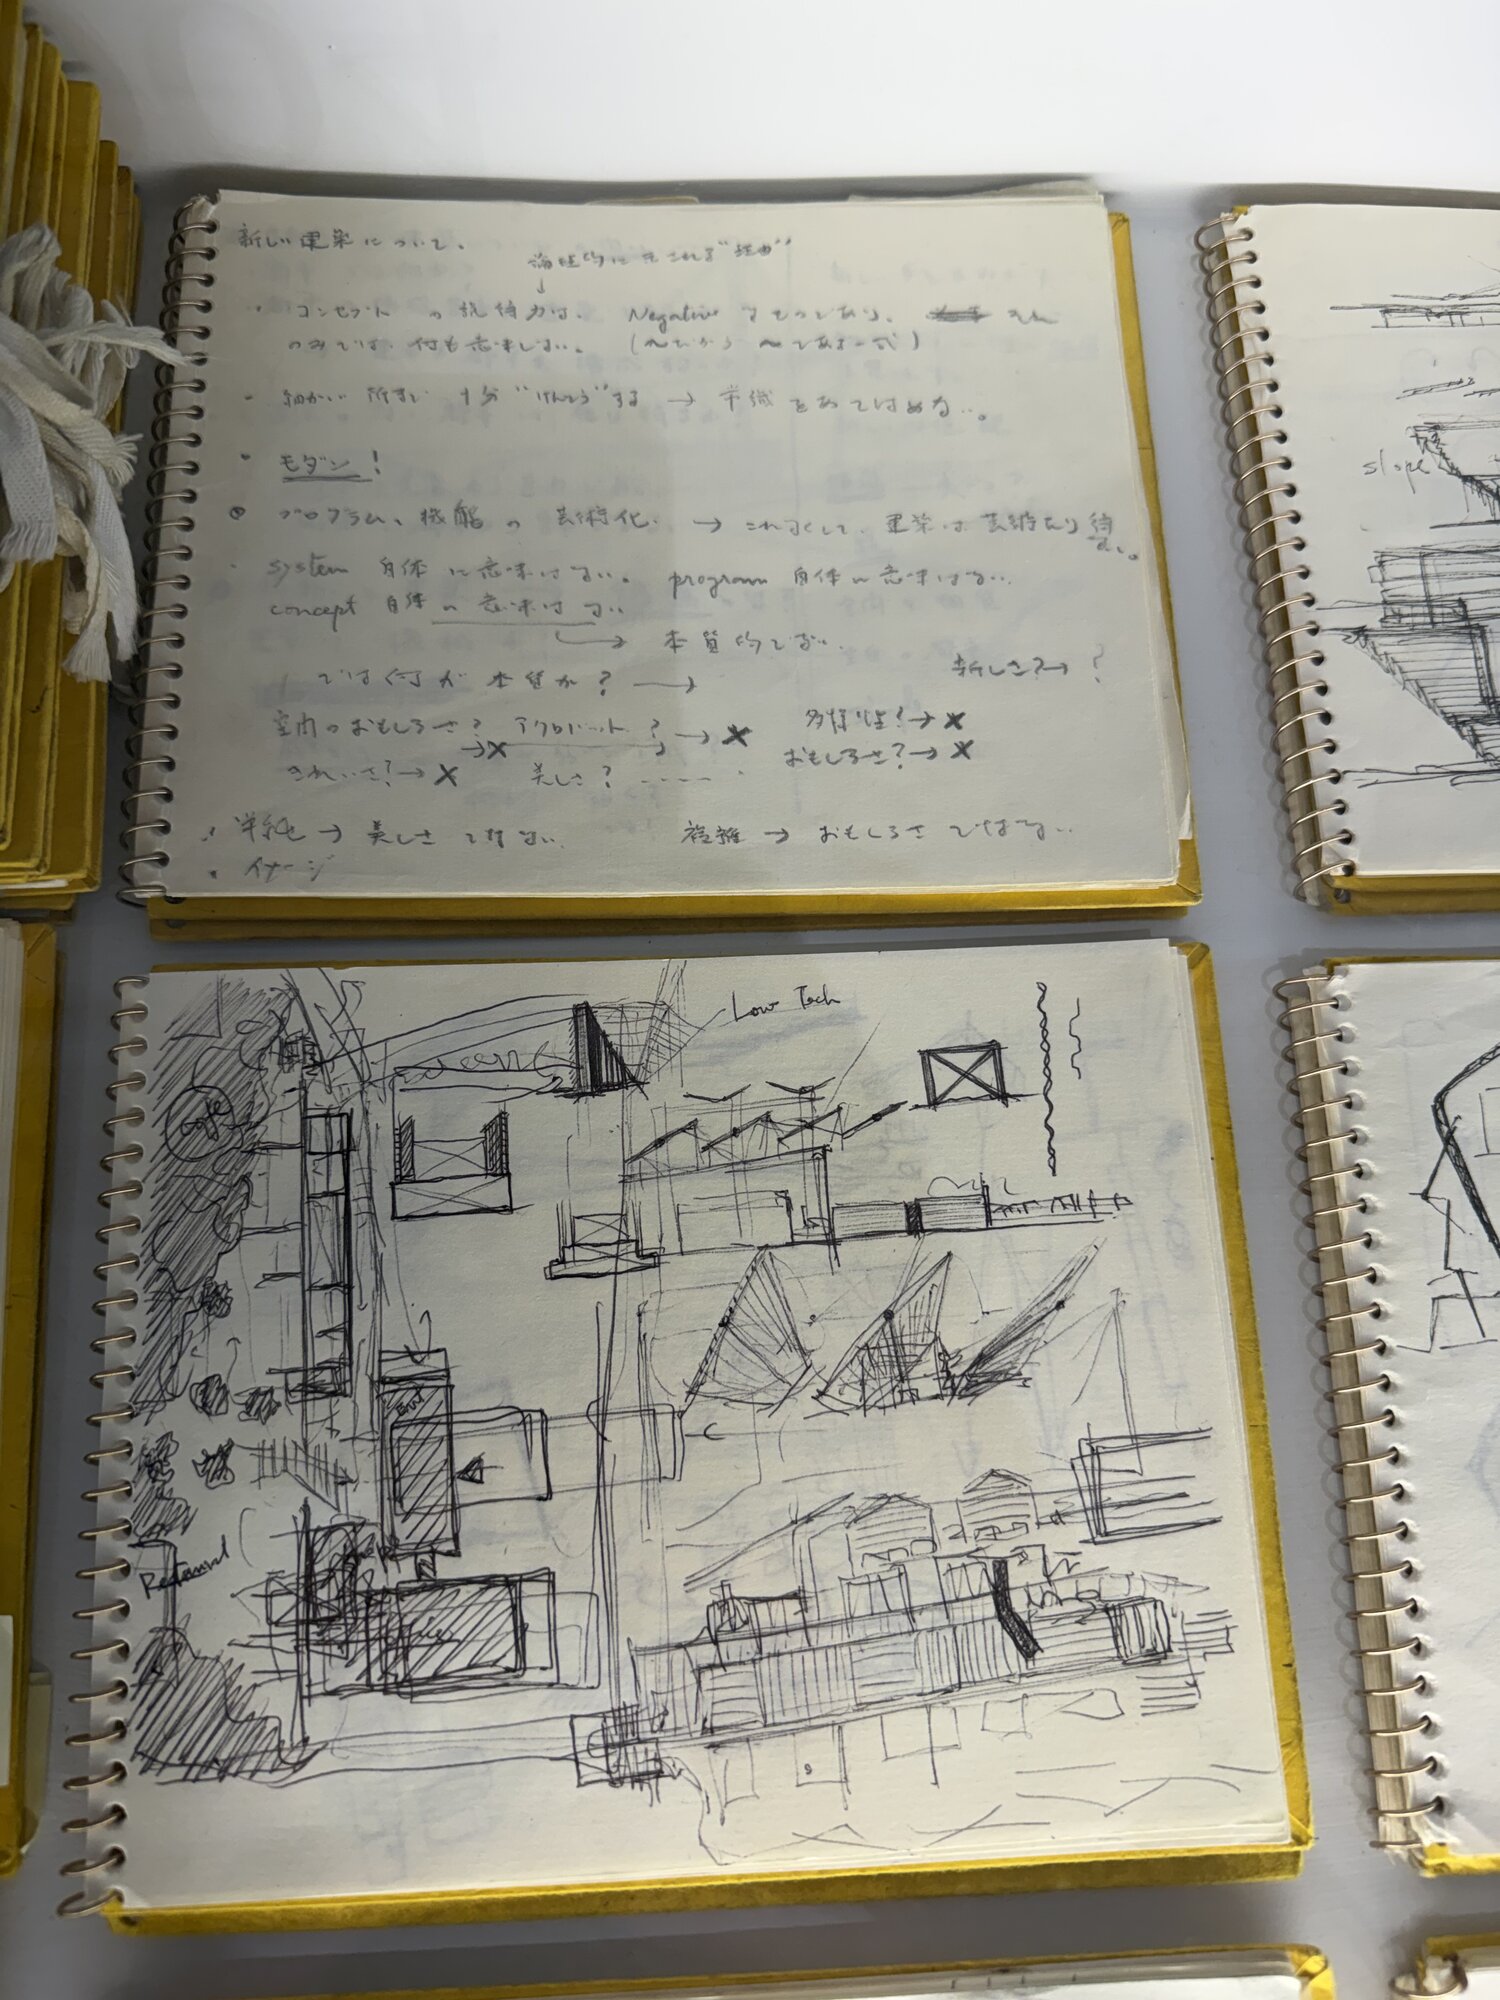 新しい建築について。
論理的に示される"理由"
・コンセプトの説得力は、Negativeなものであり、それ
のみでは、何も意味しない。(〜だから 〜であるー式)
・細かい所まで十分"けんとう"する → 常識をあてはめない。
・モダン!
◎プログラム、機能の芸術化 → これなくして、建築は芸術たり得ない。
・system 自体に意味はない。 program 自体に意味はない。
concept 自体に意味はない
→ 本質的でない。
では何が本質か? →
新しさ?→ ?
空間のおもしろさ?→× アクロバット?→× 多様性?→×
おもしろさ?→×
きれいさ?→× 美しさ?……
・単純 → 美しさではない 複雑 → おもしろさではない
・イメージ
slope
Low Tech
Cafe
Ent